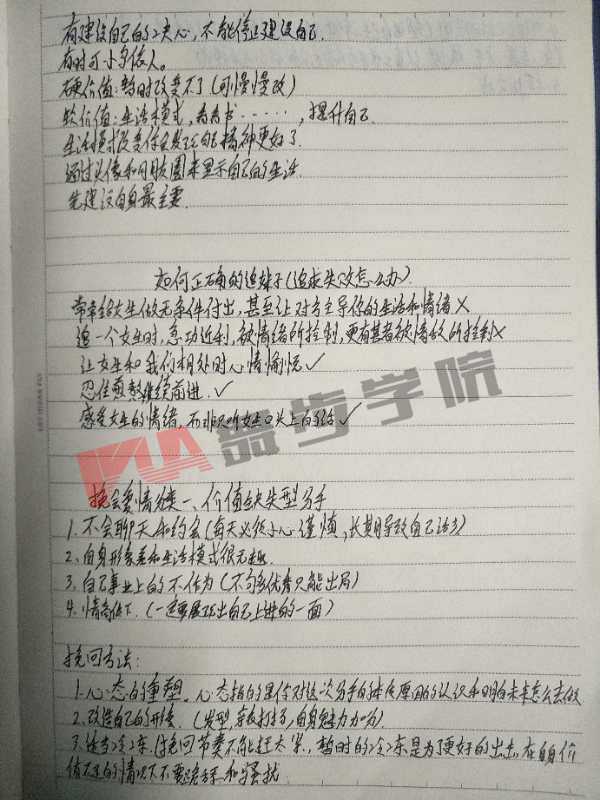 有建设自己的决心,不能停止建设自己.
有时可小鸟依人。
硬价值:暂时改变不了(可慢慢改)
软价值:生活模式,看看书……,提升自己.
生活模式改变你会发现自己精神更好了.
通过头像和朋友圈来显示自己的生活.
先建设自身最主要.
如何正确的追妹子(追求失败怎么办)
常常给女生做无条件付出,甚至让对方主导你的生活和情绪×
追一个女生时,急功近利,被情绪所控制,更有甚者被情敌所控制×
让女生和我们相处时心情愉悦✓
忍住煎熬继续前进.✓
感受女生的情绪,而非只听女生口头上的
学院
挽回爱情分类一、价值缺失型分手
1.不会聊天和约会(每天必须小心谨慎,长期导致自己
2.自身形象差和生活模式很无趣.
3.自己事业上的不作为(不够优秀只能出局)
4.情商低下.(一定要展现出自己上进的一面)
挽回方法:
1.心态的重塑.心态指的是你对这次分手的本质原因的认识和明白未来怎么去做
2.改造自己的形象(发型,穿衣打扮,自身魅力加分)
3.适当冷冻.(挽回节奏不能赶太紧,暂时的冷冻是为了更好的出击,在自身价
值不足的情况下不要跪舔和骚扰